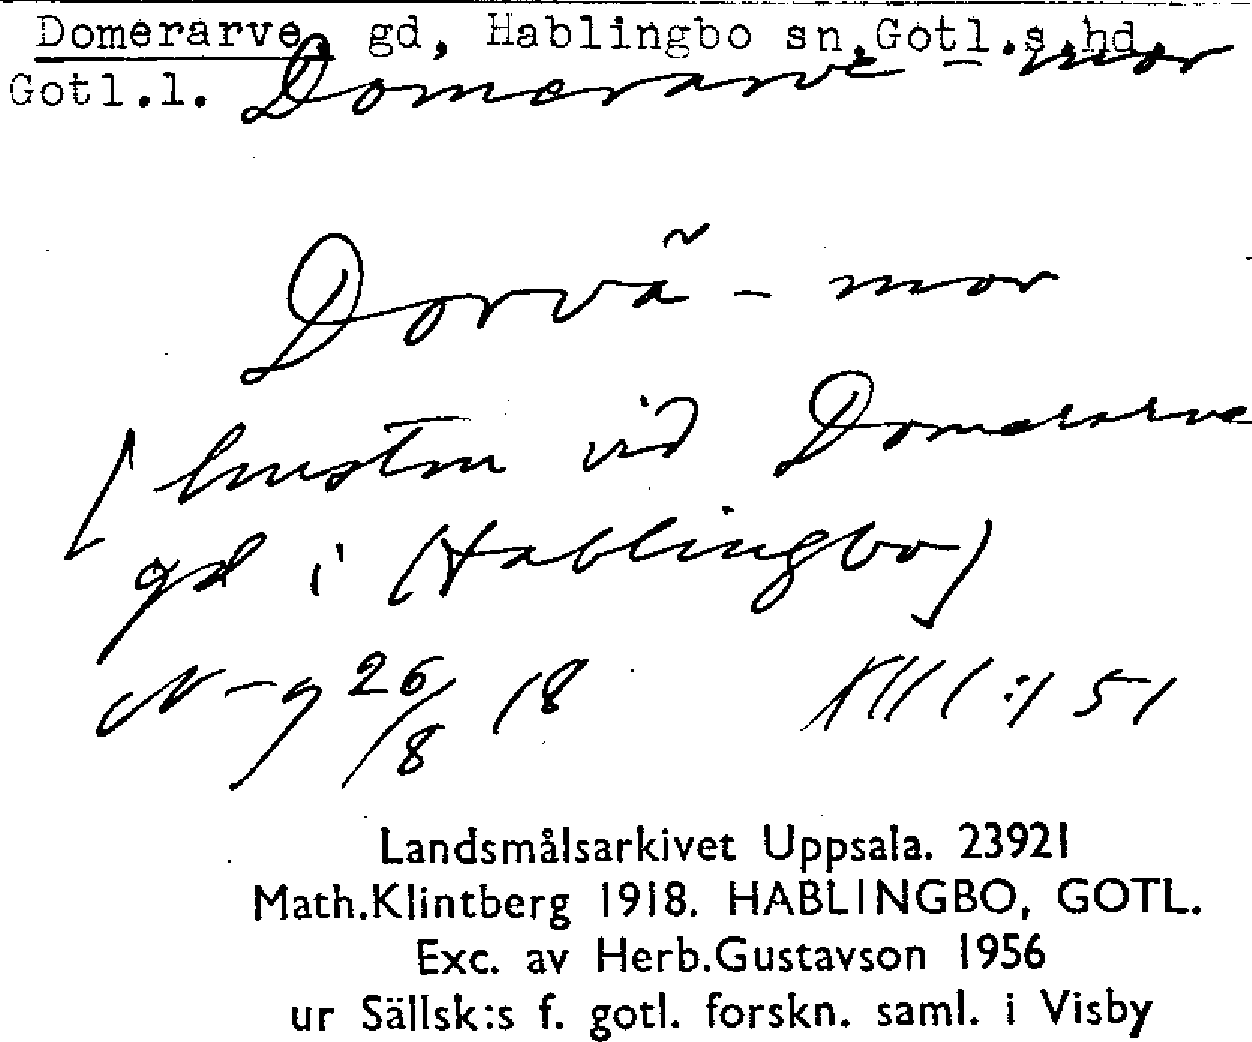 Domerarve, gd, Hablingbo sn, Gotl.s.hd,
Gotl.l. Domerarve-mor
Dorvã-mor
[hustru vid Domerarve
gd i (Hablingbo)]
N-g 26/8 18 XIII:151
Landsmålsarkivet Uppsala. 23921
Math.Klintberg 1918. HABLINGBO, GOTL.
Exc. av Herb.Gustavson 1956
ur Sällsk:s f. gotl. forskn. saml. i Visby